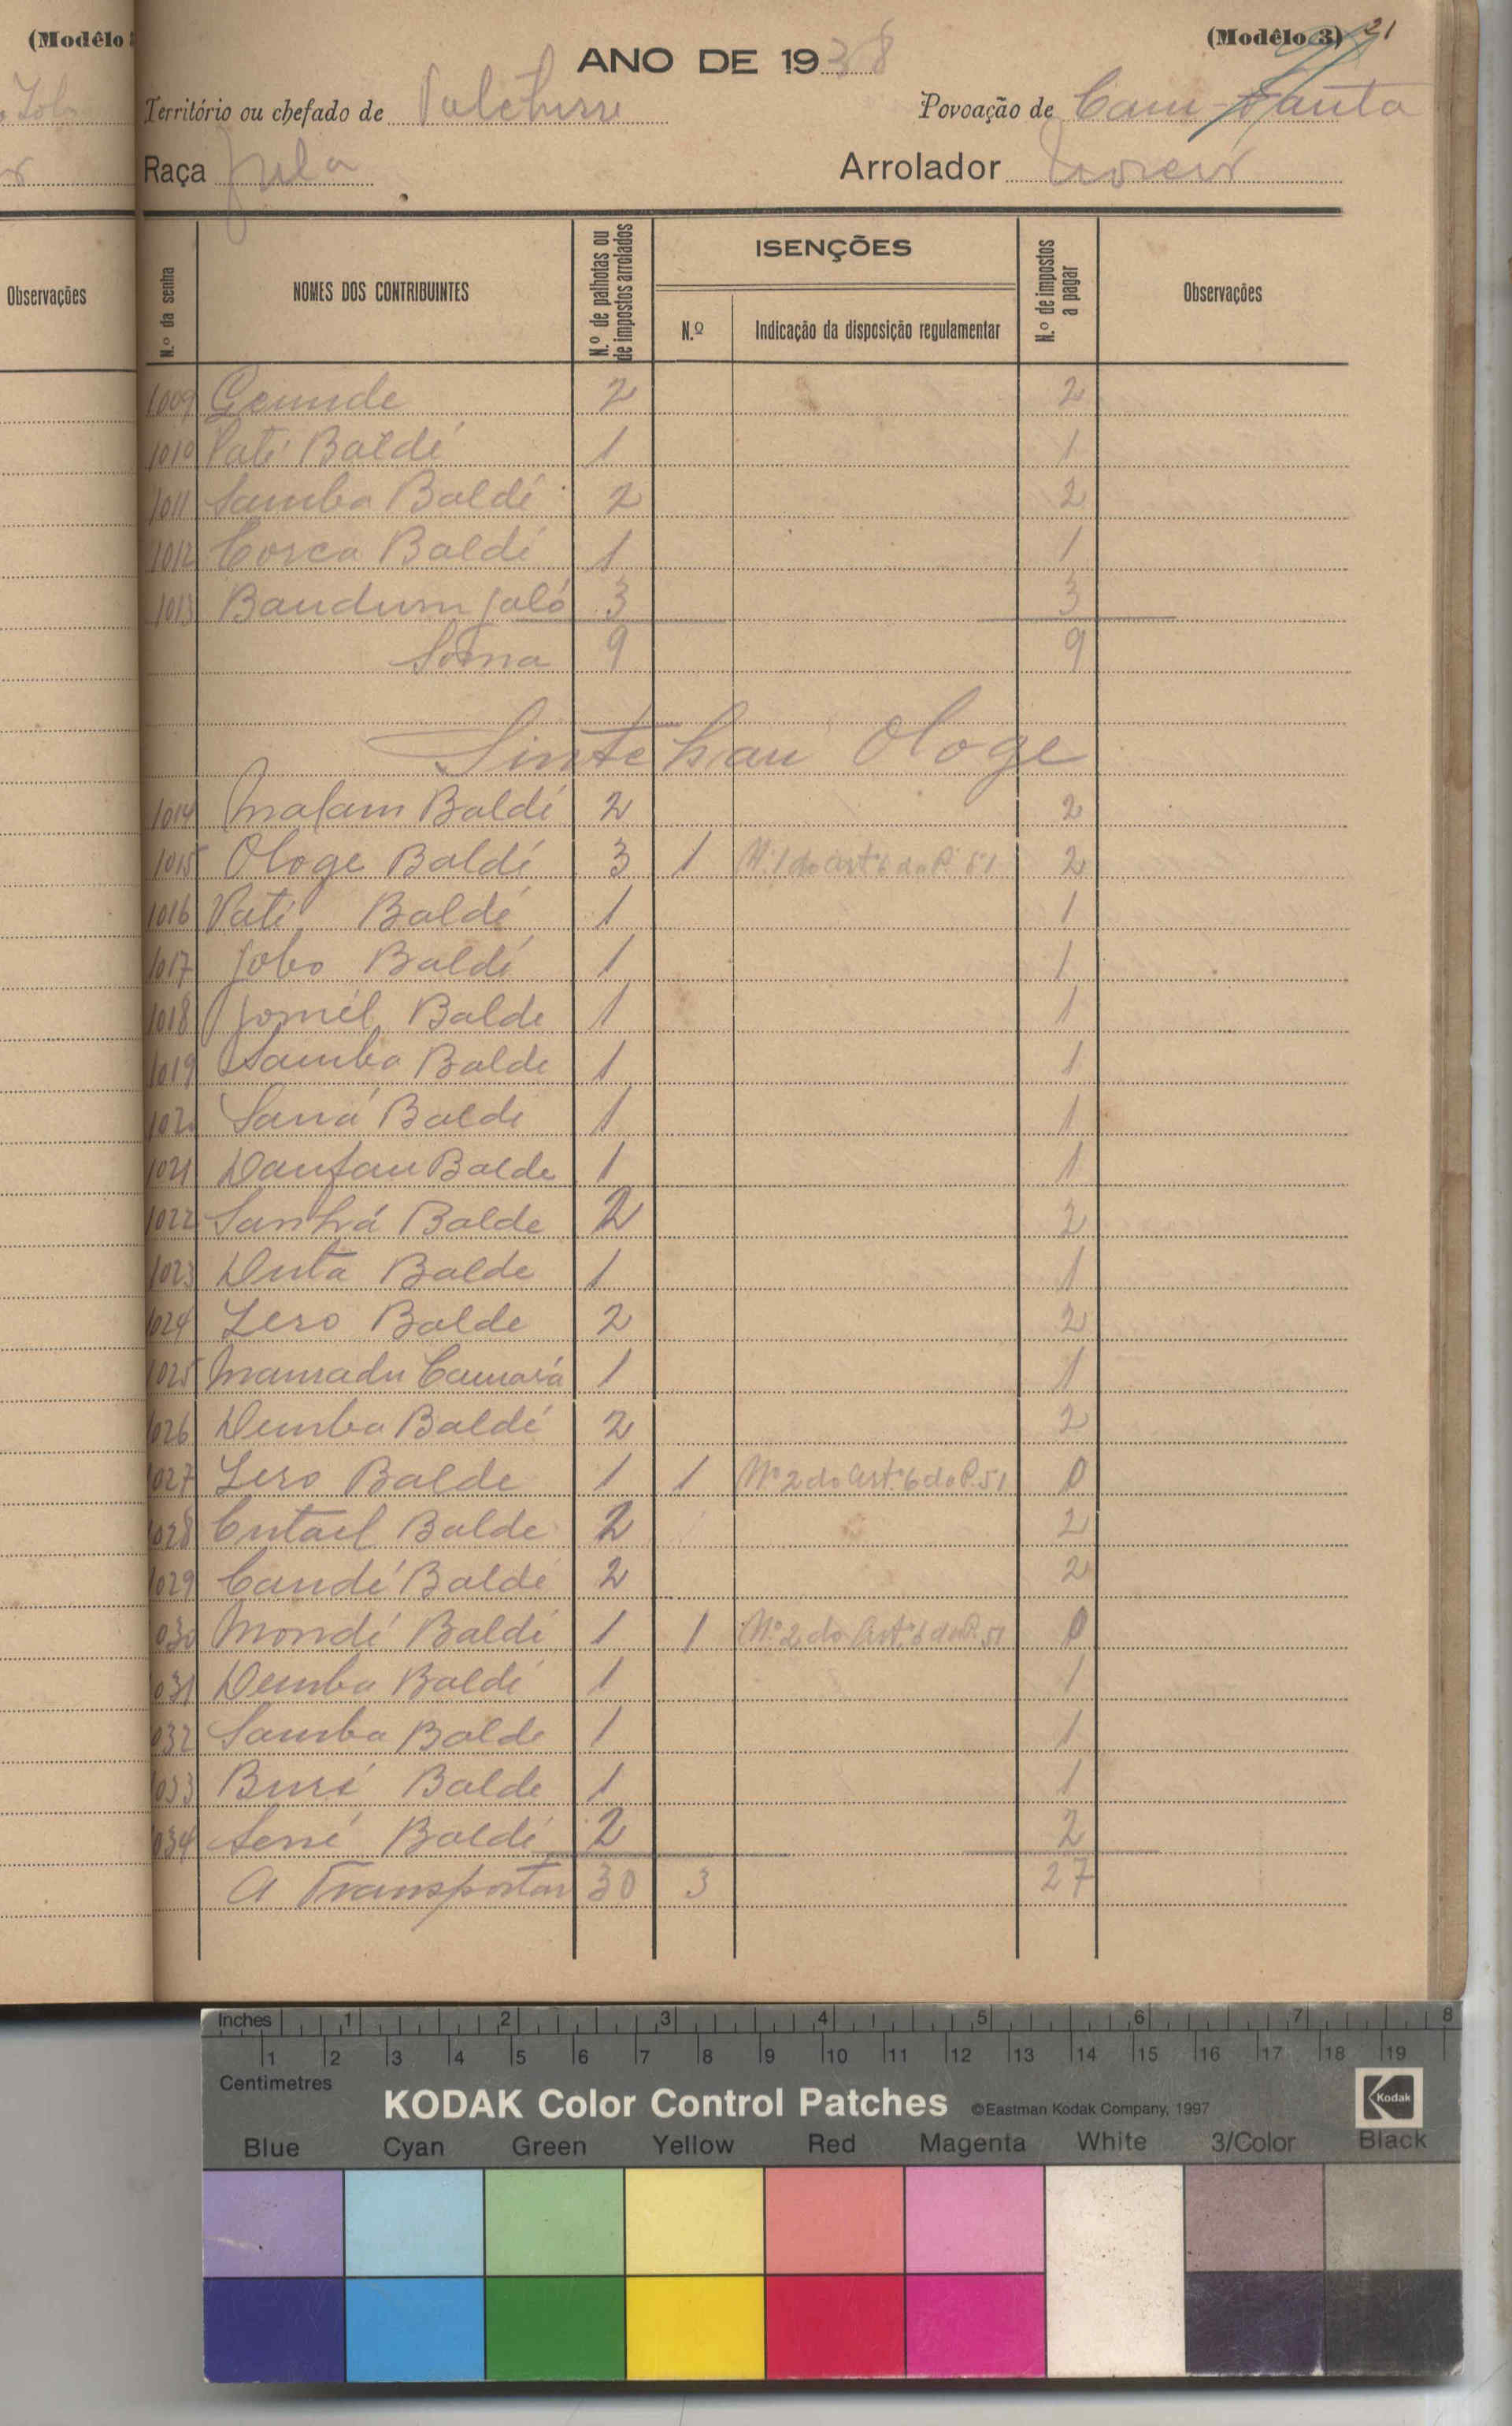 (Modêlo
(Modêlo 3) 21
ANO DE 1938
Território ou chefado de
Povoação de Cam-Fanta
Raça Fula
Arrolador
Observações
N.º da senha
NOMES DOS CONTRIBUINTES
N.º de palhotas ou de impostos arrolados
ISENÇÕES
N.º
Indicação da disposição regulamentar
N.º de impostos a pagar
Observações
1009 2 2
1010 Pati Baldé 1 1
1011 Samba Baldé 2 2
1012 Corca Baldé 1 1
1013 Baudum Jaló 3 3
Soma 9 9
Sintchau Ologe
1014 Malam Baldé 2 2
1015 Ologe Baldé 3 1 N.º 1 do Artº 6 do R. 51 2
1016 Pati Baldé 1 1
1017 Jobo Baldé 1 1
1018 Jomel Balde 1 1
1019 Samba Balde 1 1
1020 Saná Balde 1 1
1021 Daufau Balde 1 1
1022 Sanhá Balde 2 2
1023 Duta Balde 1 1
1024 Lero Balde 2 2
1025 Mamadu Camará 1 1
1026 Demba Baldé 2 2
1027 Lero Balde 1 1 Nº 2 do Artº 6 do R. 51 0
1028 Cutael Balde 2 2
1029 Candé Baldé 2 2
1030 Mondé Baldé 1 1 Nº 2 do Artº 6 do R. 51 0
1031 Demba Baldé 1 1
1032 Samba Balde 1 1
1033 Buré Balde 1 1
1034 Sené Baldé 2 2
A Transportar 30 3 27
Inches 1 2 3 4 5 6 7 8
1 2 3 4 5 6 7 8 9 10 11 12 13 14 15 16 17 18 19
Centimetres
KODAK Color Control Patches ©Eastman Kodak Company, 1997 Kodak
Blue Cyan Green Yellow Red Magenta White 3/Color Black